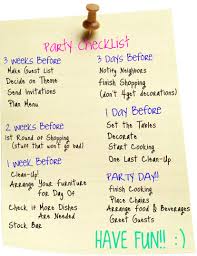 Party Checklist
3 weeks Before
Make Guest List
Decide on Theme
Send Invitations
Plan Menu
2 weeks Before
1st Round of Shopping
(stuff that won't go bad)
1 week Before
Clean-Up!
Arrange Your Furniture
for Day Of
Check if More Dishes
Are Needed
Stock Bar
3 Days Before
Notify Neighbors
Finish Shopping
(don't 4get decorations)
1 Day Before
Set the Tables
Decorate
Start Cooking
One Last Clean-Up
PARTY DAY!!
Finish Cooking
Place Chairs
Arrange Food & Beverages
Greet Guests
HAVE FUN!! :)